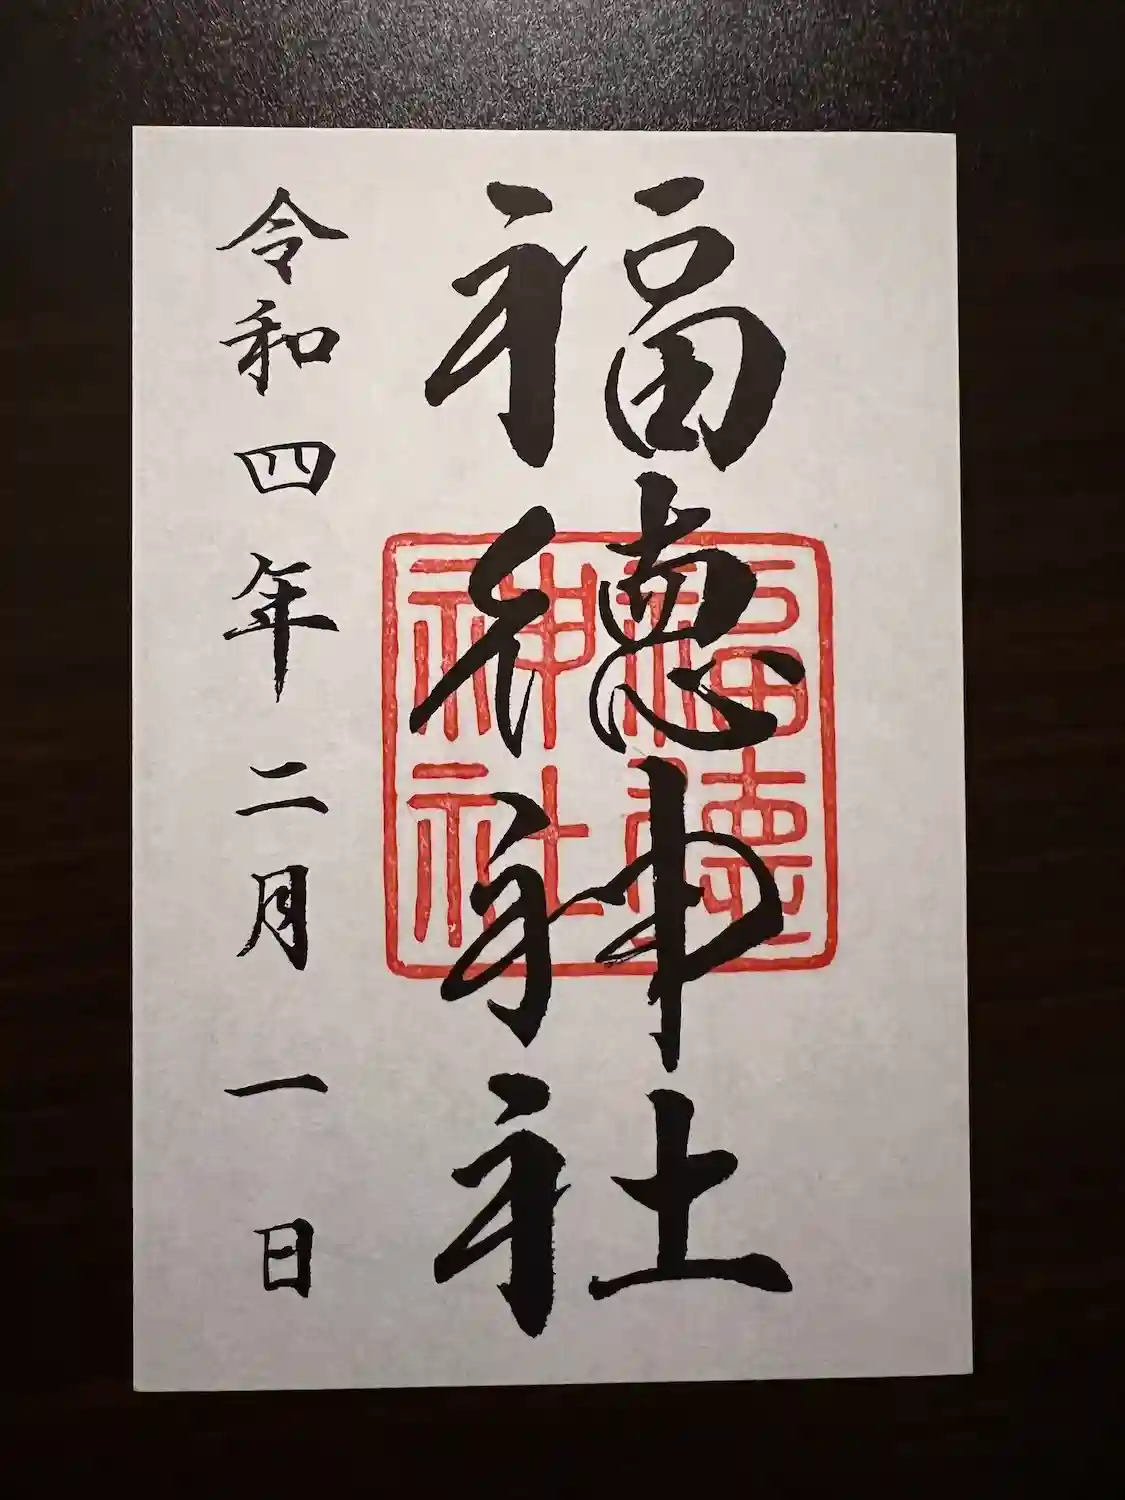 福徳神社
福徳神社
令和四年二月一日